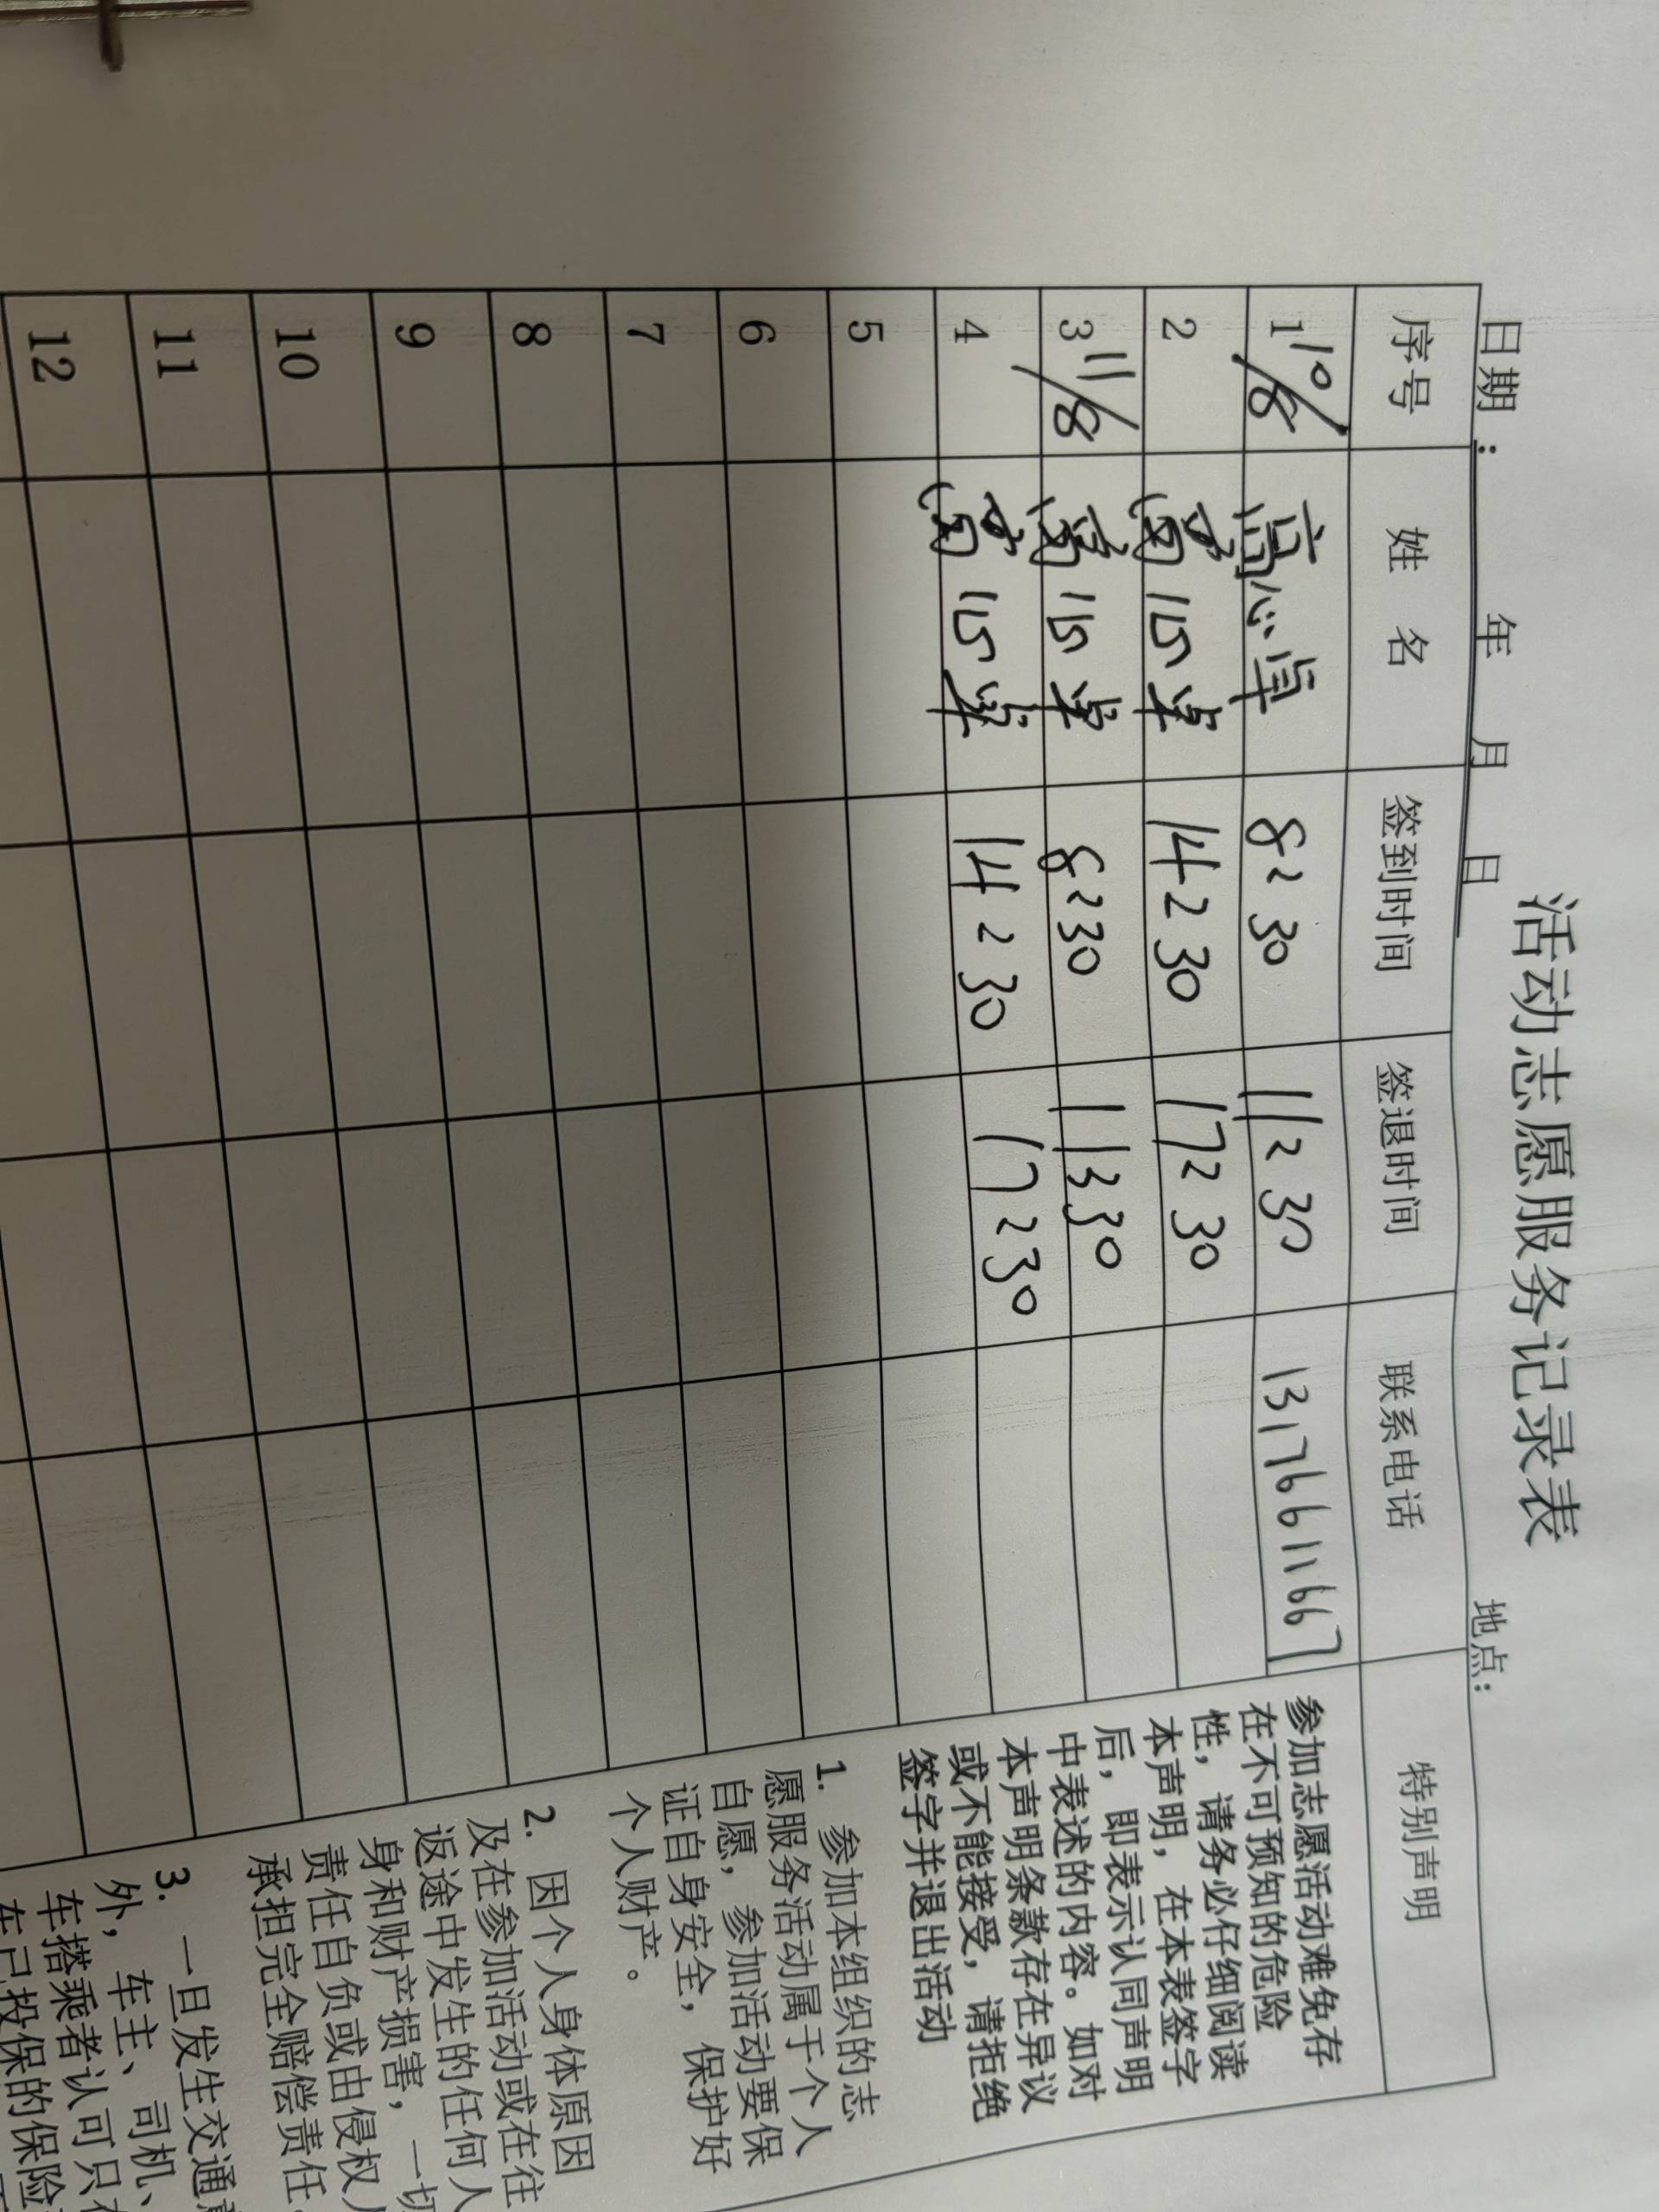 活动志愿服务记录表
日期: 年 月 日 地点:
序号 姓 名 签到时间 签退时间 联系电话 特别声明
1 10/8 高心卓 8:30 11:30 13176611667
2 14:30 17:30
3 11/8 8:30 11:30
4 14:30 17:30
5
6
7
8
9
10
11
12
参加志愿活动难免存
在不可预知的危险
性，请务必仔细阅读
本声明，在本表签字
后，即表示认同声明
中表述的内容。如对
本声明条款存在异议
或不能接受，请拒绝
签字并退出活动
1. 参加本组织的志
愿服务活动属于个人
自愿，参加活动要保
证自身安全，保护好
个人财产。
2. 因个人身体原因
及在参加活动或在往
返途中发生的任何人
身和财产损害，一切
责任自负或由侵权人
承担完全赔偿责任。
3. 一旦发生交通
外，车主、司机、
车搭乘者认可只
车已投保的保险